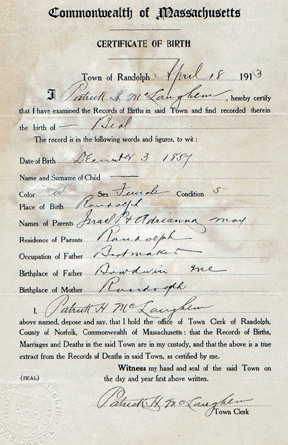 Commonwealth of Massachusetts
CERTIFICATE OF BIRTH
Town of Randolph April 18 1913
I Patrick H. McLaughlin, hereby certify
that I have examined the Records of Birth in said Town and find recorded therein
the birth of — Beal
The record is in the following words and figures, to wit:
Date of Birth December 3 1857
Name and Surname of Child —
Color W Sex Female Condition S
Place of Birth Randolph
Names of Parents & Adrianna
Residence of Parents Randolph
Occupation of Father Bootmaker
Birthplace of Father Bowdoin Me
Birthplace of Mother Randolph
I, Patrick H McLaughlin
above named, depose and say, that I hold the office of Town Clerk of Randolph,
County of Norfolk, Commonwealth of Massachusetts: that the Records of Births,
Marriages and Deaths in the said Town are in my custody, and that the above is a true
extract from the Records of Deaths in said Town, as certified by me.
Witness my hand and seal of the said Town on
(SEAL) the day and year first above written.
Patrick H. McLaughlin
Town Clerk